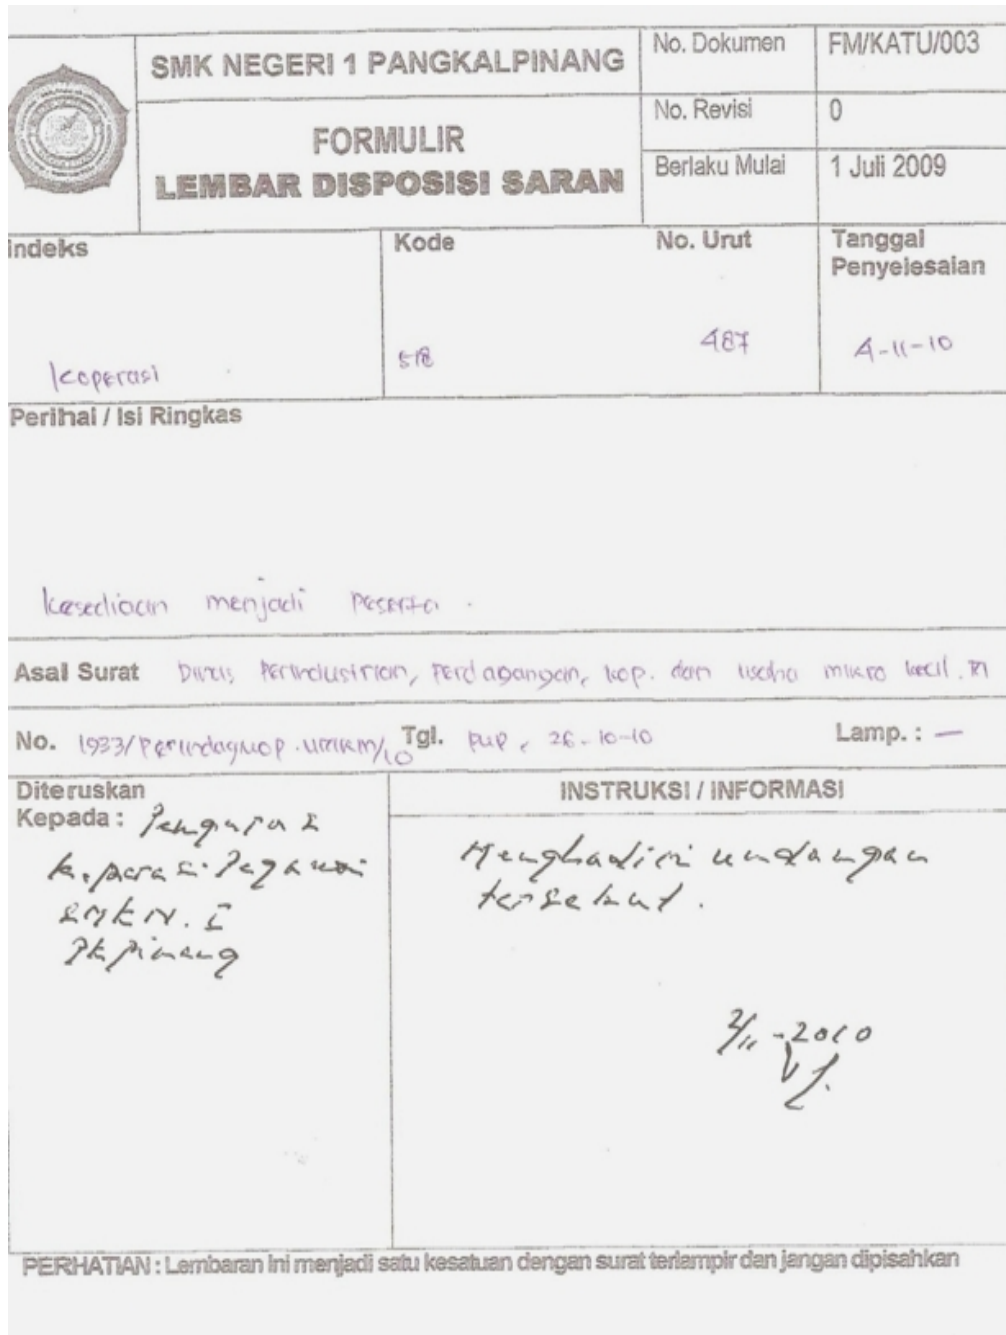 SMK NEGERI 1 PANGKALPINANG
No. Dokumen FM/KATU/003
FORMULIR
LEMBAR DISPOSISI SARAN
No. Revisi 0
Berlaku Mulai 1 Juli 2009
Indeks
Koperasi
Kode
518
No. Urut
487
Tanggal
Penyelesaian
4-11-10
Perihal / Isi Ringkas
Kesediaan menjadi peserta.
Asal Surat Dinas Perindustrian, Perdagangan, kop. dan usaha mikro kecil.
No. 1933/Perindagkop.umkm/10 Tgl. PKP, 26-10-10 Lamp. : —
Diteruskan
Kepada : Pengurus
Koperasi Pegawai
SMKN. I
Pkpinang
INSTRUKSI / INFORMASI
Menghadiri undangan
tersebut.
2/11-2010
PERHATIAN : Lembaran ini menjadi satu kesatuan dengan surat terlampir dan jangan dipisahkan